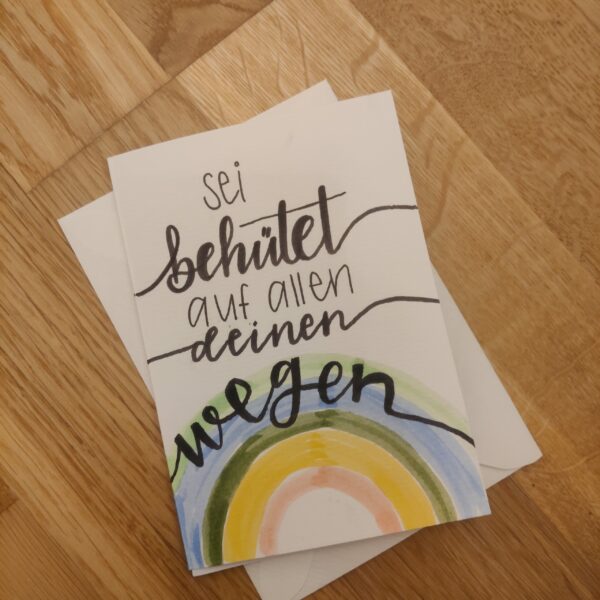 sei
behütet
auf allen
deinen
wegen